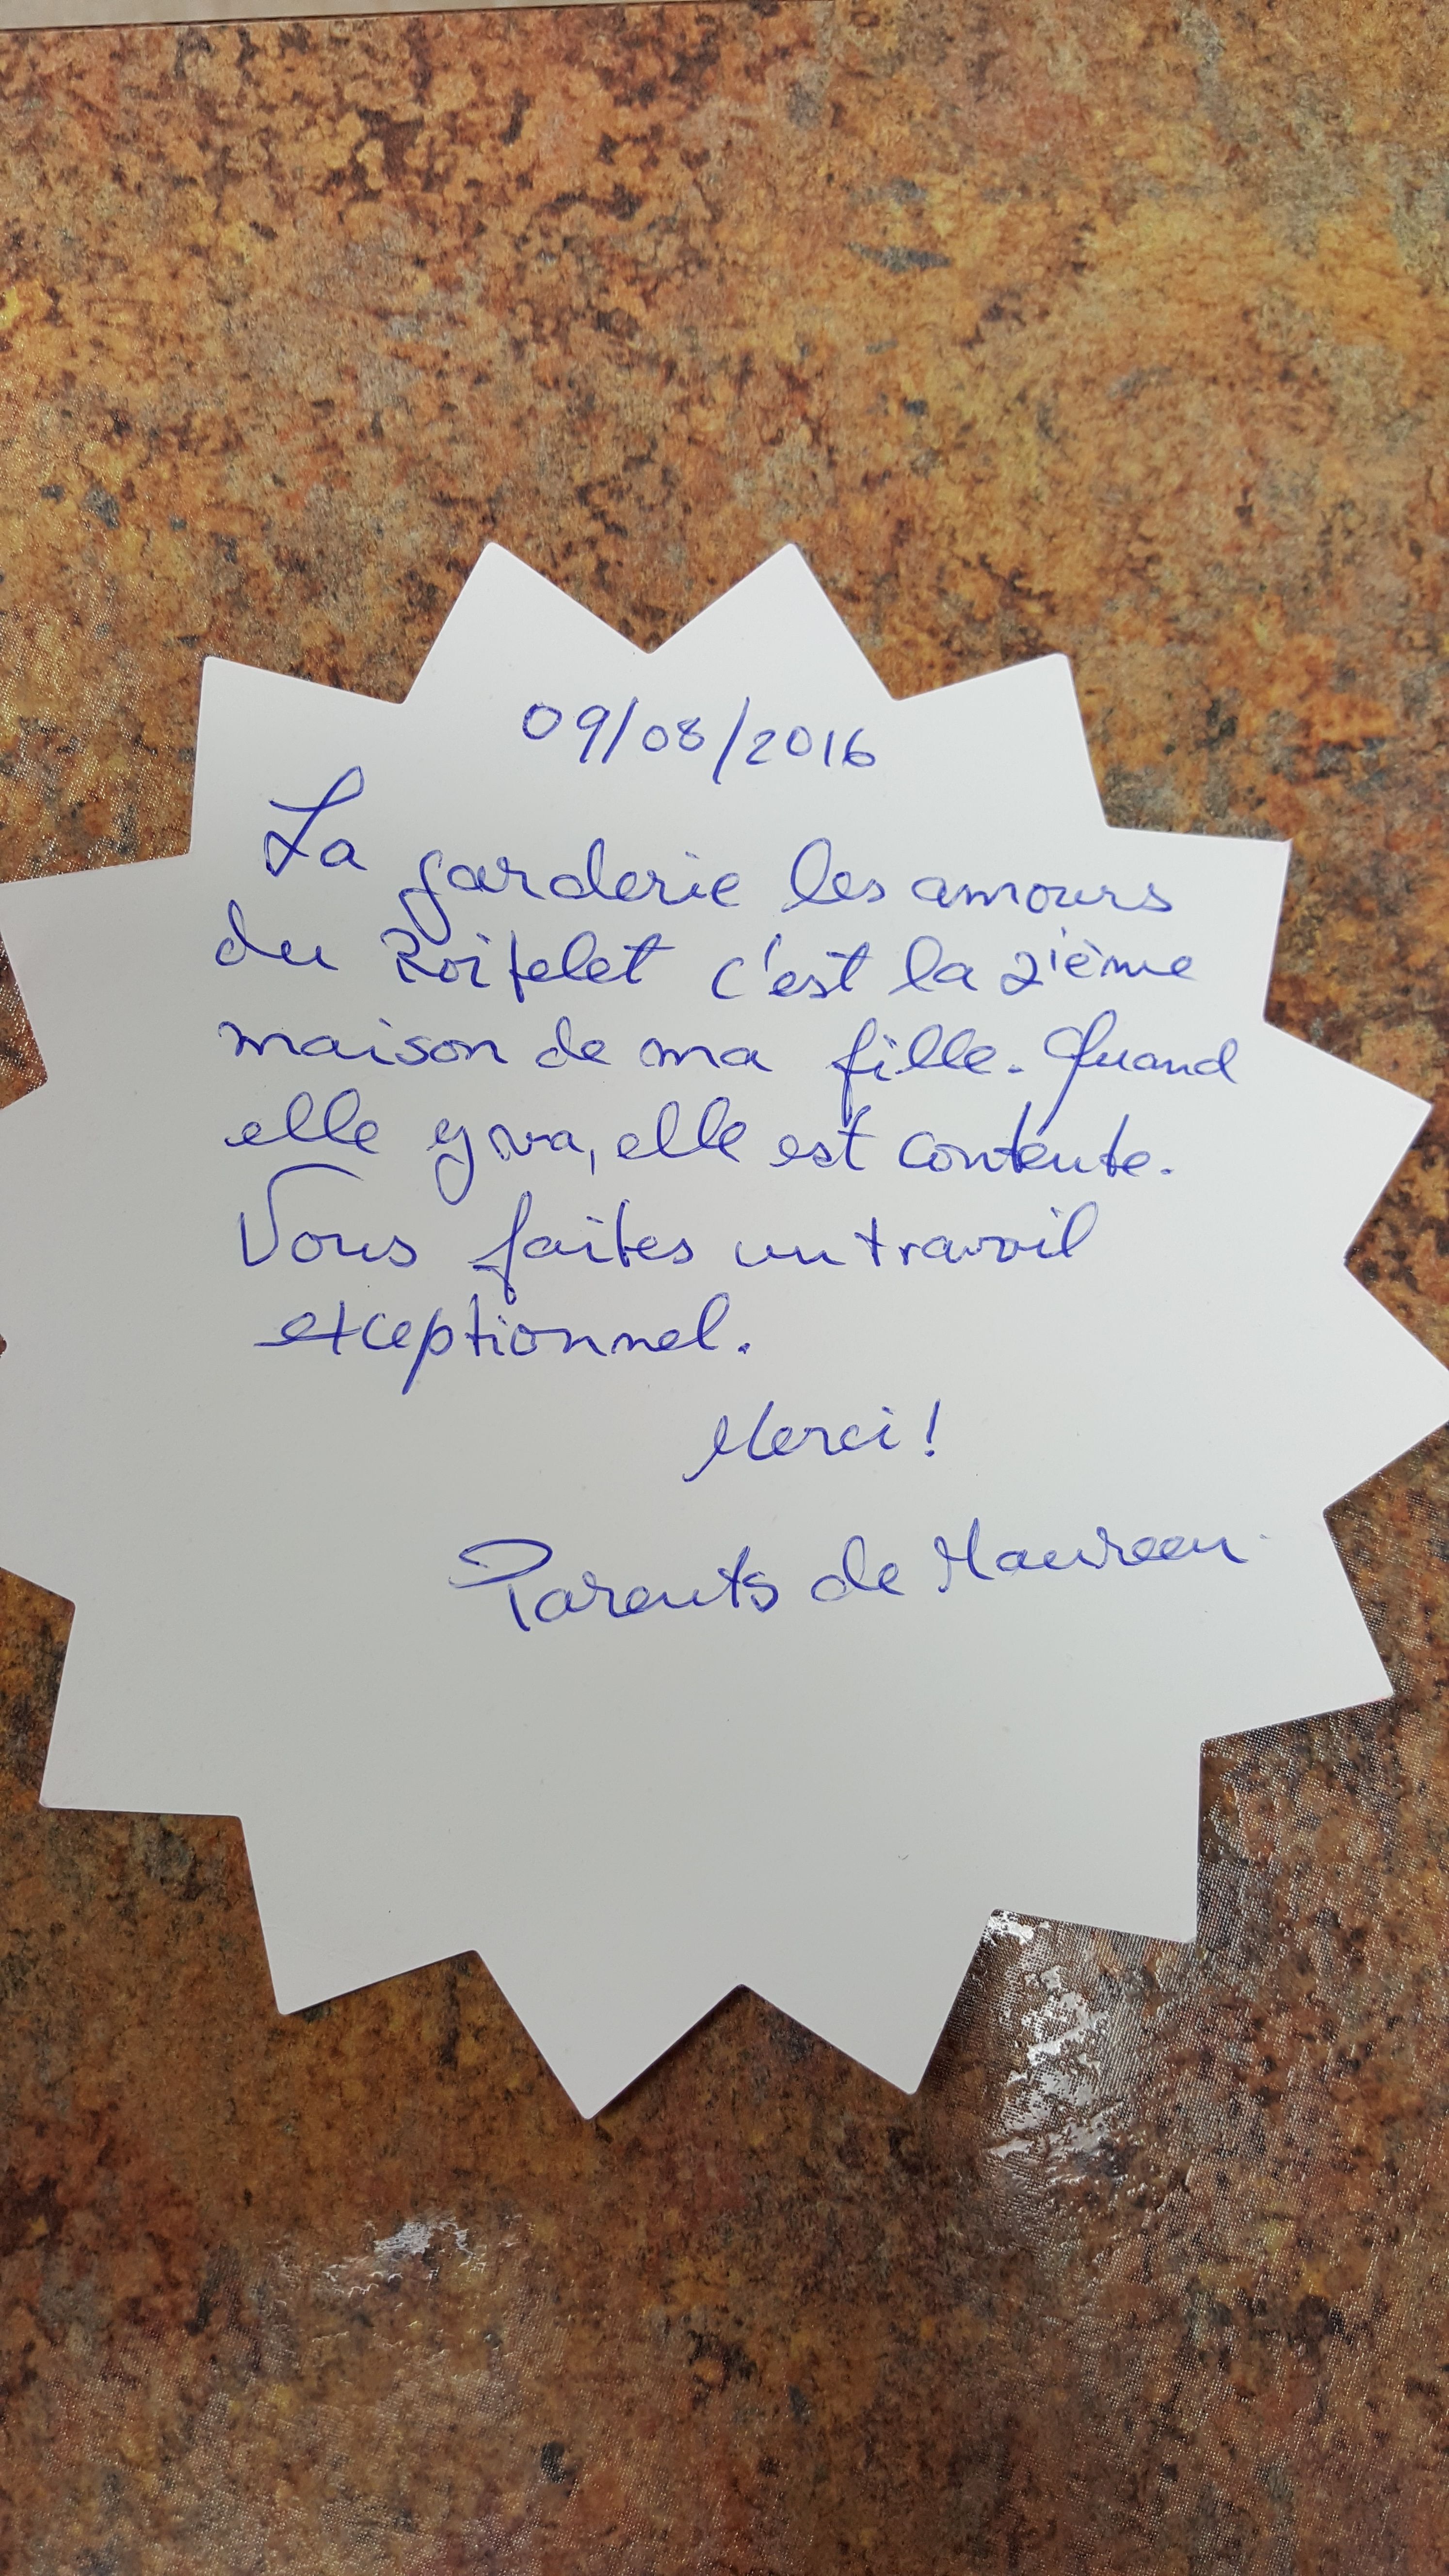 09/08/2016
La garderie les amours
du Roitelet c'est la 2ième
maison de ma fille. Quand
elle y va, elle est contente.
Vous faites un travail
exceptionnel.
Merci!
Parents de Maureen.